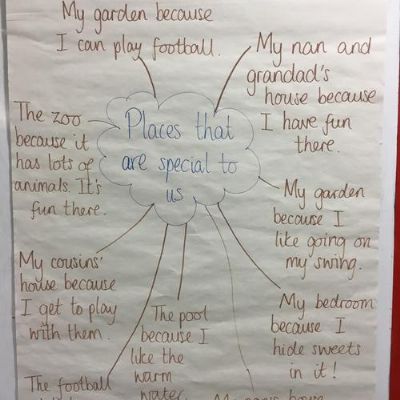 My garden because
I can play football.
My nan and
grandad's
house because
I have fun
there.
The zoo
because it
has lots of
animals. It's
fun there.
Places that
are special to
us
My garden
because I
like going on
my swing.
My cousins'
house because
I get to play
with them.
The pool
because I
like the
warm
water
My bedroom
because I
hide sweets
in it!
The football